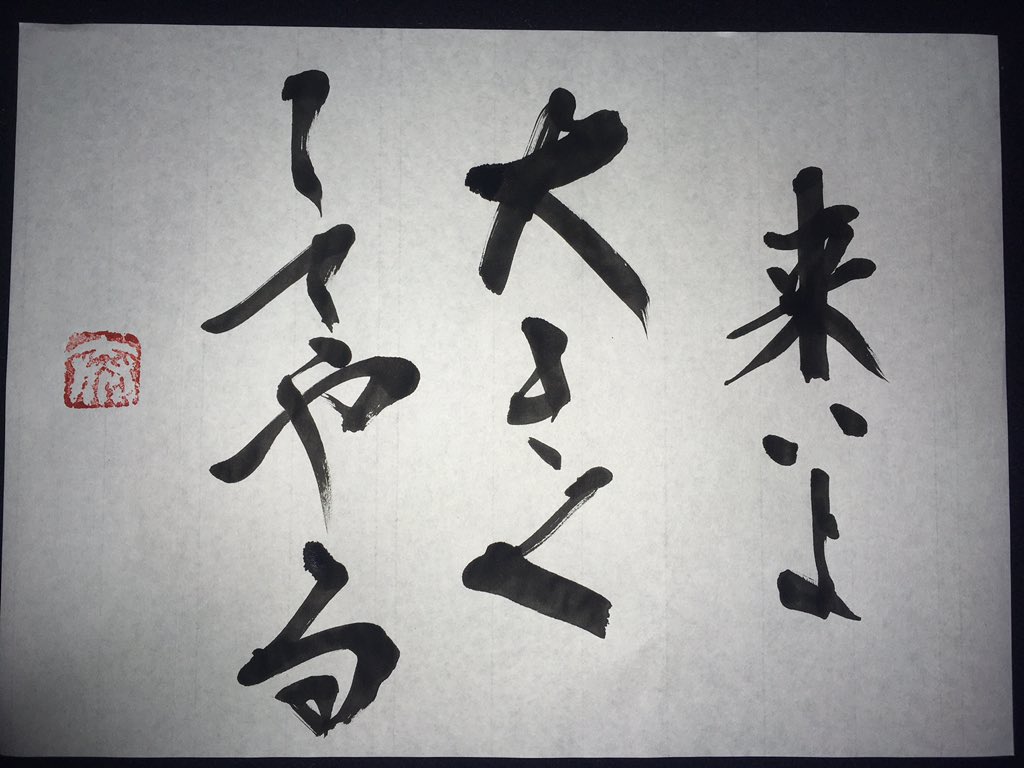 来いよ
大きく
してやる